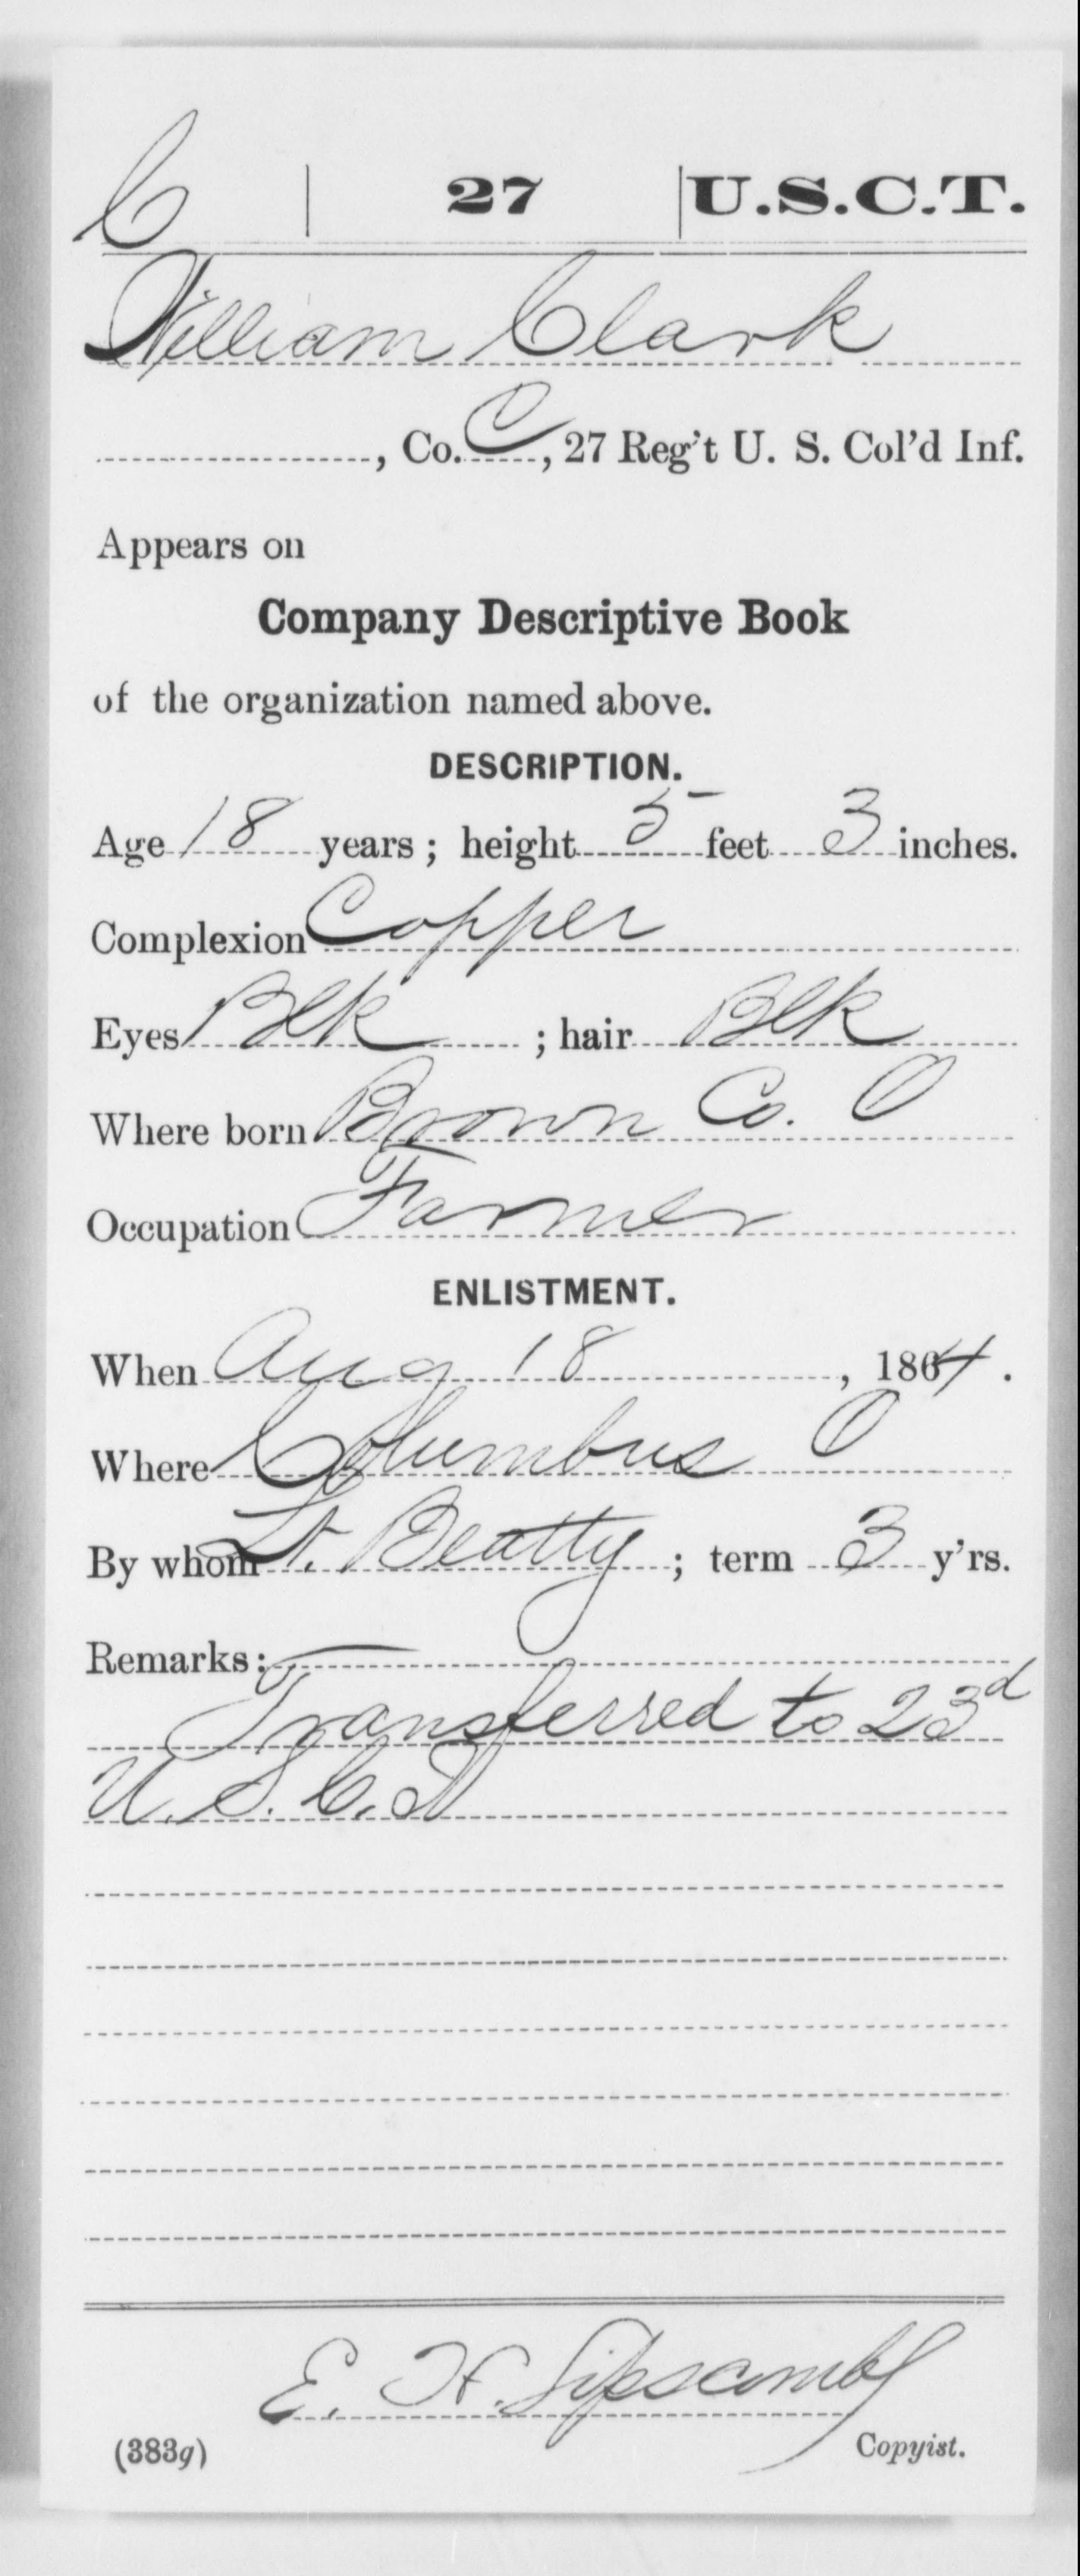 C | 27 | U.S.C.T.
William Clark
, Co. C, 27 Reg't U. S. Col'd Inf.
Appears on
Company Descriptive Book
of the organization named above.
DESCRIPTION.
Age 18 years; height 5 feet 3 inches.
Complexion Copper
Eyes Blk; hair Blk
Where born Brown Co. O
Occupation Farmer
ENLISTMENT.
When Aug 18, 1864.
Where Columbus O
By whom Lt. Beatty; term 3 y'rs.
Remarks:
Transferred to 23d
U.S.C.T
E. H. Lipscomb
(383g) Copyist.